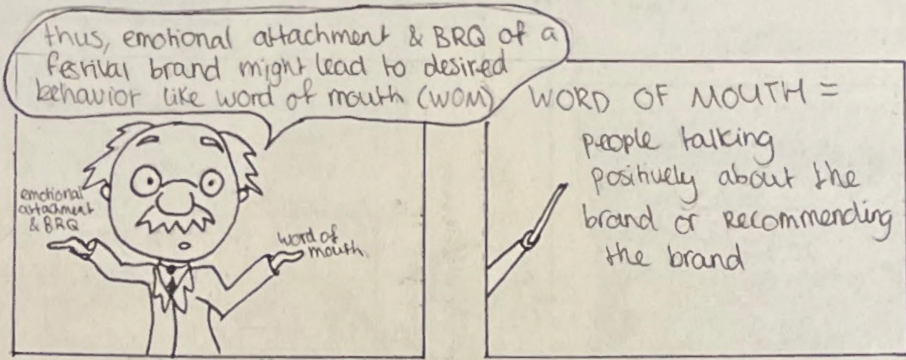 thus, emotional attachment & BRQ of a
festival brand might lead to desired
behavior like word of mouth (WOM)
emotional
attachment
& BRQ
word of
mouth
WORD OF MOUTH =
people talking
positively about the
brand or recommending
the brand